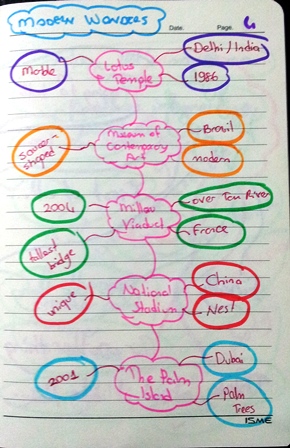 MODERN WONDERS
Date:
Page:
4
Marble
Lotus
Temple
Delhi / India
1986
saucer-
shaped
Museum of
Contemporary
Art
Brazil
modern
2004
tallest
bridge
Millau
Viaduct
over Tarn River
France
unique
National
Stadium
China
Nest
2001
The Palm
Island
Dubai
Palm
Trees
ISME